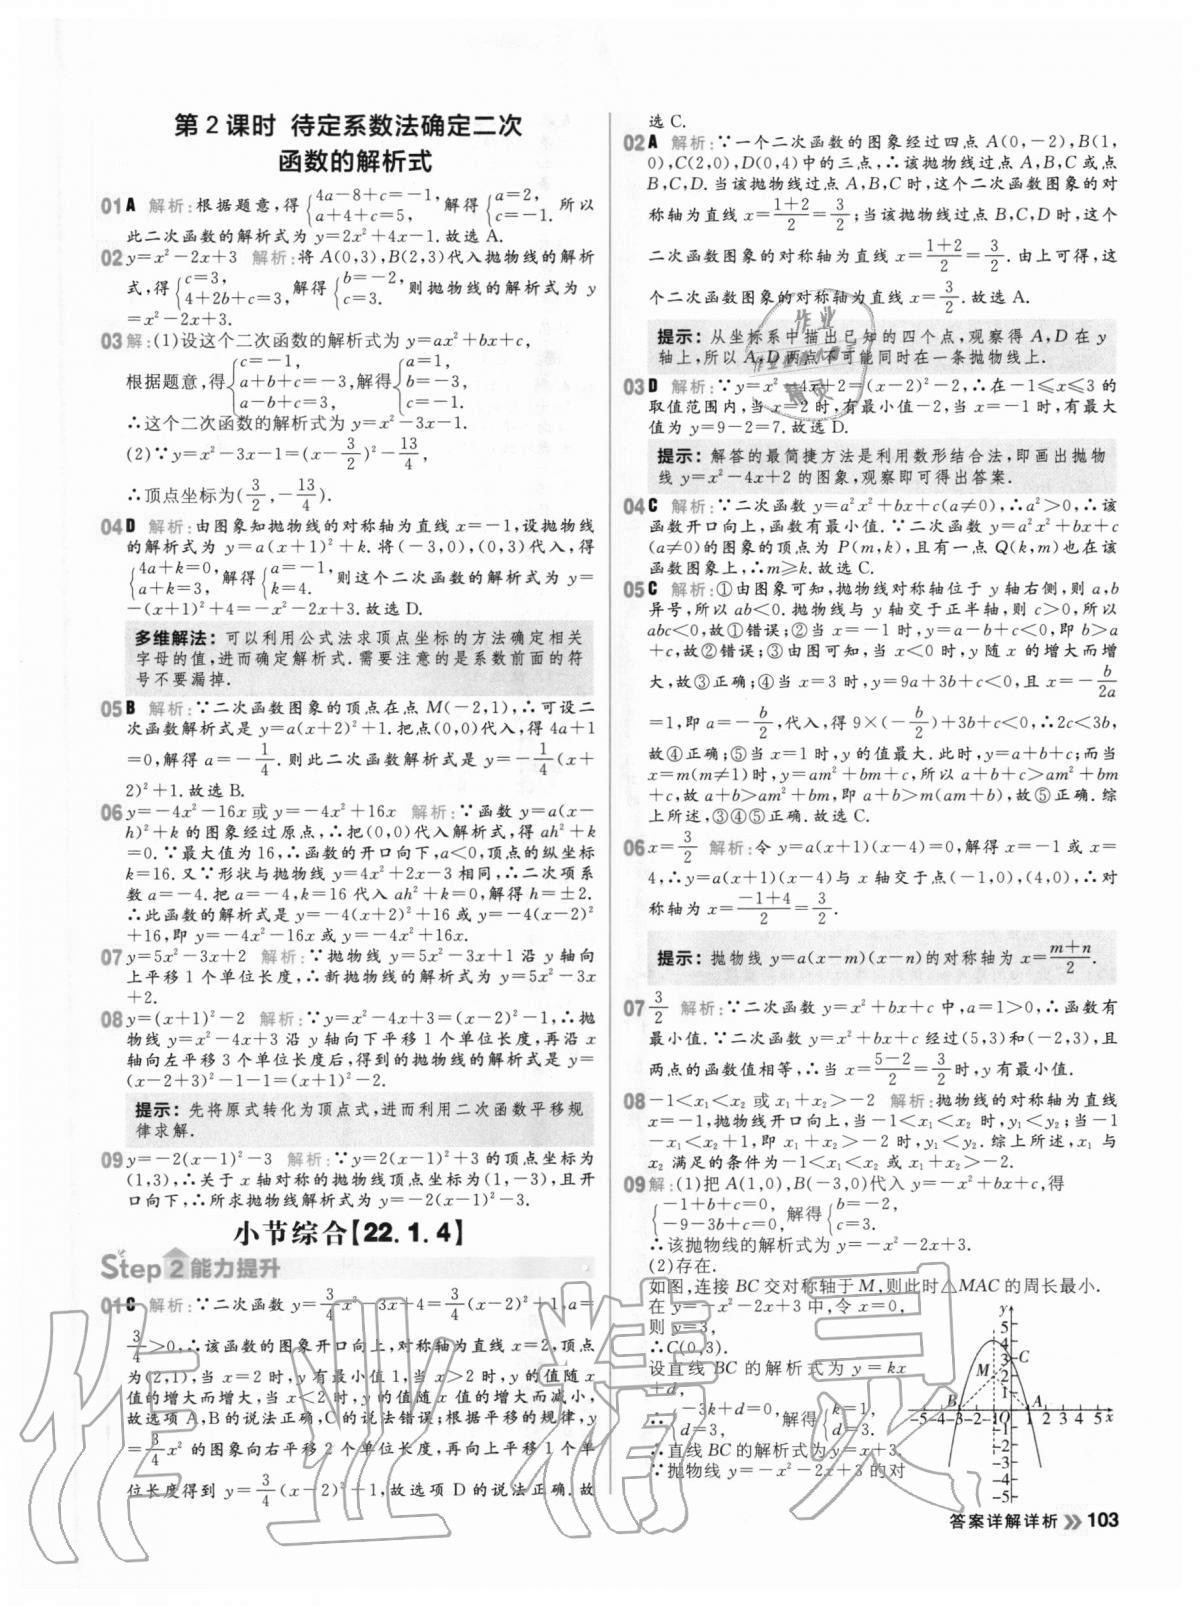 第2课时 待定系数法确定二次
函数的解析式
01 A 解析:根据题意,得{4a-8+c=-1, a+4+c=5, 解得{a=2, c=-1. 所以
此二次函数的解析式为 y=2x²+4x-1.故选A.
02 y=x²-2x+3 解析:将A(0,3),B(2,3)代入抛物线的解析
式,得{c=3, 4+2b+c=3, 解得{b=-2, c=3. 则抛物线的解析式为 y
=x²-2x+3.
03 解:(1)设这个二次函数的解析式为 y=ax²+bx+c,
根据题意,得{c=-1, a+b+c=-3, a-b+c=3, 解得{a=1, b=-3, c=-1.
∴这个二次函数的解析式为 y=x²-3x-1.
(2)∵y=x²-3x-1=(x-3/2)²-13/4,
∴顶点坐标为(3/2,-13/4).
04 D 解析:由图象知抛物线的对称轴为直线 x=-1,设抛物线
的解析式为 y=a(x+1)²+k.将(-3,0),(0,3)代入,得
{4a+k=0, a+k=3, 解得{a=-1, k=4. 则这个二次函数的解析式为 y=
-(x+1)²+4=-x²-2x+3.故选D.
多维解法:可以利用公式法求顶点坐标的方法确定相关
字母的值,进而确定解析式.需要注意的是系数前面的符
号不要漏掉.
05 B 解析:∵二次函数图象的顶点在点M(-2,1),∴可设二
次函数解析式是 y=a(x+2)²+1.把点(0,0)代入,得4a+1
=0,解得a=-1/4.则此二次函数解析式是 y=-1/4(x+
2)²+1.故选B.
06 y=-4x²-16x或y=-4x²+16x 解析:∵函数y=a(x-
h)²+k的图象经过原点,∴把(0,0)代入解析式,得ah²+k
=0.∵最大值为16,∴函数的开口向下,a<0,顶点的纵坐标
k=16.又∵形状与抛物线 y=4x²+2x-3相同,∴二次项系
数a=-4.把a=-4,k=16代入ah²+k=0,解得h=±2.
∴此函数的解析式是 y=-4(x+2)²+16或y=-4(x-2)²
+16,即 y=-4x²-16x或y=-4x²+16x.
07 y=5x²-3x+2 解析:∵抛物线 y=5x²-3x+1沿 y轴向
上平移1个单位长度,∴新抛物线的解析式为 y=5x²-3x
+2.
08 y=(x+1)²-2 解析:∵y=x²-4x+3=(x-2)²-1,∴抛
物线 y=x²-4x+3沿 y轴向下平移1个单位长度,再沿x
轴向左平移3个单位长度后,得到的抛物线的解析式是 y=
(x-2+3)²-1-1=(x+1)²-2.
提示:先将原式转化为顶点式,进而利用二次函数平移规
律求解.
09 y=-2(x-1)²-3 解析:∵y=2(x-1)²+3的顶点坐标为
(1,3),∴关于x轴对称的抛物线顶点坐标为(1,-3),且开
口向下,∴所求抛物线解析式为 y=-2(x-1)²-3.
小节综合【22.1.4】
Step 2 能力提升
01 C 解析:∵二次函数 y=3/4x²-3x+4=3/4(x-2)²+1,a=
3/4>0,∴该函数的图象开口向上,对称轴为直线x=2,顶点
为(2,1),当x=2时,y有最小值1,当x>2时,y的值随x
值的增大而增大,当x<2时,y的值随x值的增大而减小,
故选项A、B的说法正确,C的说法错误;根据平移的规律,y
=3/4x²的图象向右平移2个单位长度,再向上平移1个单
位长度得到 y=3/4(x-2)²+1,故选项D的说法正确.故
选C.
02 A 解析:∵一个二次函数的图象经过四点A(0,-2),B(1,
0),C(2,0),D(0,4)中的三点,∴该抛物线过点A,B,C或点
B,C,D.当该抛物线过点A,B,C时,这个二次函数图象的对
称轴为直线x=(1+2)/2=3/2;当该抛物线过点B,C,D时,这个
二次函数图象的对称轴为直线x=(1+2)/2=3/2.由上可得,这
个二次函数图象的对称轴为直线x=3/2.故选A.
提示:从坐标系中描出已知的四个点,观察得A,D在y
轴上,所以A,D两点不可能同时在一条抛物线上.
03 D 解析:∵y=x²-4x+2=(x-2)²-2,∴在-1≤x≤3的
取值范围内,当x=2时,有最小值-2,当x=-1时,有最大
值为y=9-2=7.故选D.
提示:解答的最简捷方法是利用数形结合法,即画出抛物
线y=x²-4x+2的图象,观察即可得出答案.
04 C 解析:∵二次函数y=a²x²+bx+c(a≠0),∴a²>0,∴该
函数开口向上,函数有最小值.∵二次函数y=a²x²+bx+c
(a≠0)的图象的顶点为P(m,k),且有一点Q(k,m)也在该
函数图象上,∴m≥k.故选C.
05 C 解析:①由图象可知,抛物线对称轴位于y轴右侧,则a,b
异号,所以ab<0.抛物线与y轴交于正半轴,则c>0,所以
abc<0,故①错误;②当x=-1时,y=a-b+c<0,即b>a
+c,故②错误;③由图可知,当x<0时,y随x的增大而增
大,故③正确;④当x=3时,y=9a+3b+c<0,且x=-b/2a
=1,即a=-b/2,代入,得9×(-b/2)+3b+c<0,∴2c<3b,
故④正确;⑤当x=1时,y的值最大.此时,y=a+b+c;而当
x=m(m≠1)时,y=am²+bm+c,所以a+b+c>am²+bm
+c,故a+b>am²+bm,即a+b>m(am+b),故⑤正确.综
上所述,③④⑤正确.故选C.
06 x=3/2 解析:令y=a(x+1)(x-4)=0,解得x=-1或x=
4,∴y=a(x+1)(x-4)与x轴交于点(-1,0),(4,0),∴对
称轴为x=(-1+4)/2=3/2.
提示:抛物线y=a(x-m)(x-n)的对称轴为x=(m+n)/2.
07 3/2 解析:∵二次函数y=x²+bx+c中,a=1>0,∴函数有
最小值.∵二次函数y=x²+bx+c经过(5,3)和(-2,3),且
两点的函数值相等,∴当x=(5-2)/2=3/2时,y有最小值.
08 -1<x₁<x₂或x₁+x₂>-2 解析:抛物线的对称轴为直线
x=-1,抛物线开口向上,当-1<x₁<x₂时,y₁<y₂;当-1
-x₁<x₂+1,即x₁+x₂>-2时,y₁<y₂.综上所述,x₁与
x₂满足的条件为-1<x₁<x₂或x₁+x₂>-2.
09 解:(1)把A(1,0),B(-3,0)代入y=-x²+bx+c,得
{-1+b+c=0, -9-3b+c=0, 解得{b=-2, c=3.
∴该抛物线的解析式为y=-x²-2x+3.
(2)存在.
如图,连接BC交对称轴于M,则此时△MAC的周长最小.
在y=-x²-2x+3中,令x=0,
则y=3,
∴C(0,3).
设直线BC的解析式为y=kx
+d,
∴{-3k+d=0, d=3, 解得{k=1, d=3.
∴直线BC的解析式为y=x+3.
∵抛物线y=-x²-2x+3的对
y
5
4
3
C
M
2
1
B
A
-5-4-3-2-1O 1 2 3 4 5 x
-1
-2
-3
-4
-5
答案详解详析 103
作业精灵
作业
精灵